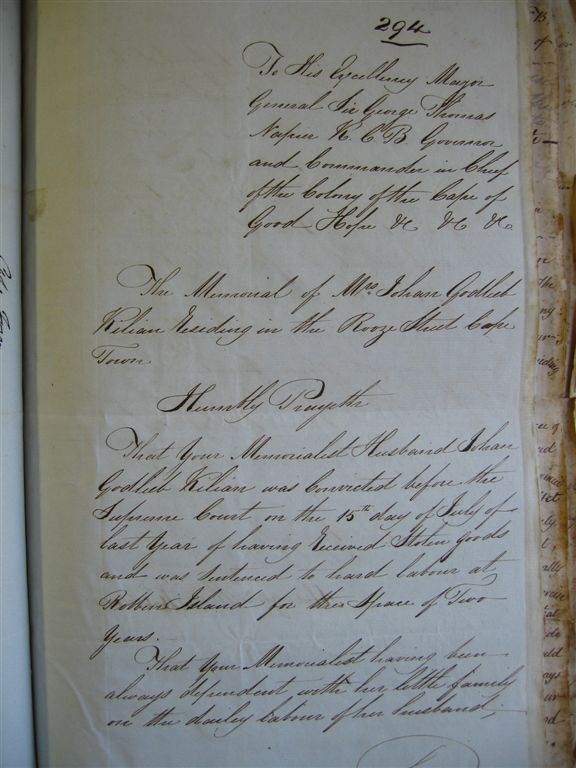 294
To His Excellency Mayor
General Sir George Thomas
Napier K. C. B. Governor
and Commander in Chief
of the Colony of the Cape of
Good Hope &c &c &c
The Memorial of Mrs Johan Godlieb
Kilian Residing in the Rooze Street Cape
Town
Humbly Prayeth
That Your Memorialist Husband Johan
Godlieb Kilian was Convicted before the
Supreme Court on the 15th day of July of
last Year of having Received Stolen Goods
and was Sentenced to hard labour at
Robben Island for the Space of Two
Years.
That Your Memorialist having been
always dependent with her little family
on the dailey labour of her husband,